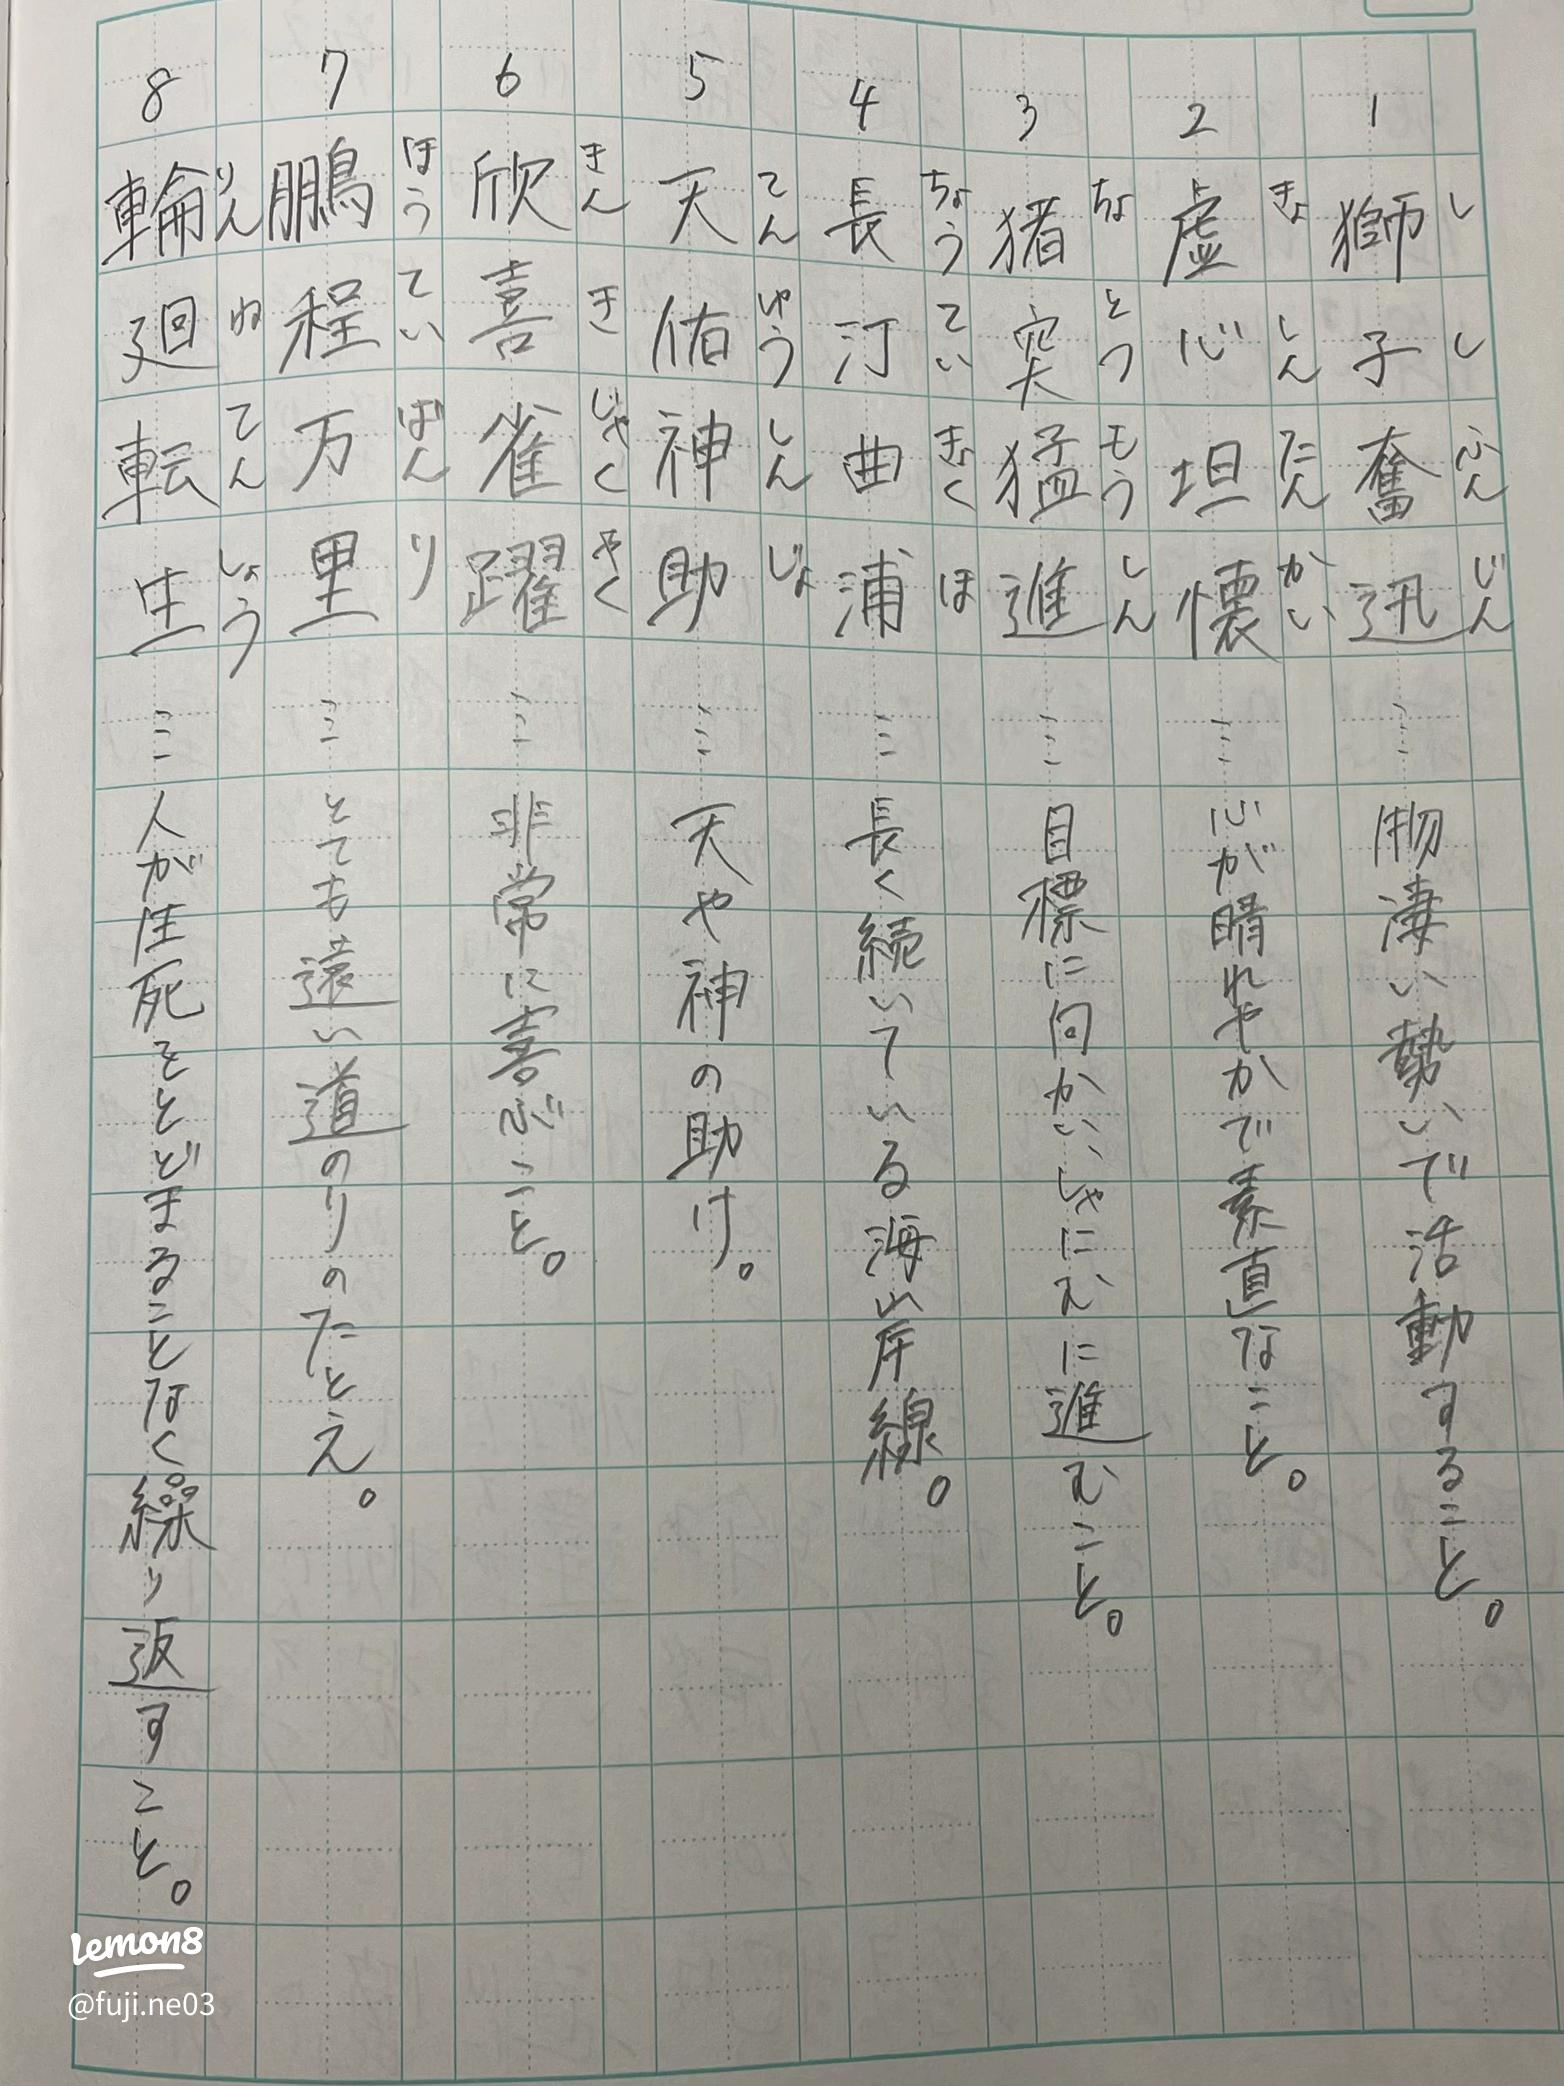 1 獅子奮迅…物凄い勢いで活動すること。
しし ふんじん
2 虚心坦懐…心が晴れやかで素直なこと。
きょしんたんかい
3 猪突猛進…目標に向かい、しゃにむに進むこと。
ちょとつもうしん
4 長汀曲浦…長く続いている海岸線。
ちょうていきょくほ
5 天佑神助…天や神の助け。
てんゆうしんじょ
6 欣喜雀躍…非常に喜ぶこと。
きんきじゃくやく
7 鵬程万里…とても遠い道のりのたとえ。
ほうていばんり
8 輪廻転生…人が生死をとどまることなく繰り返すこと。
りんねてんしょう
Lemon8
@fuji.ne03